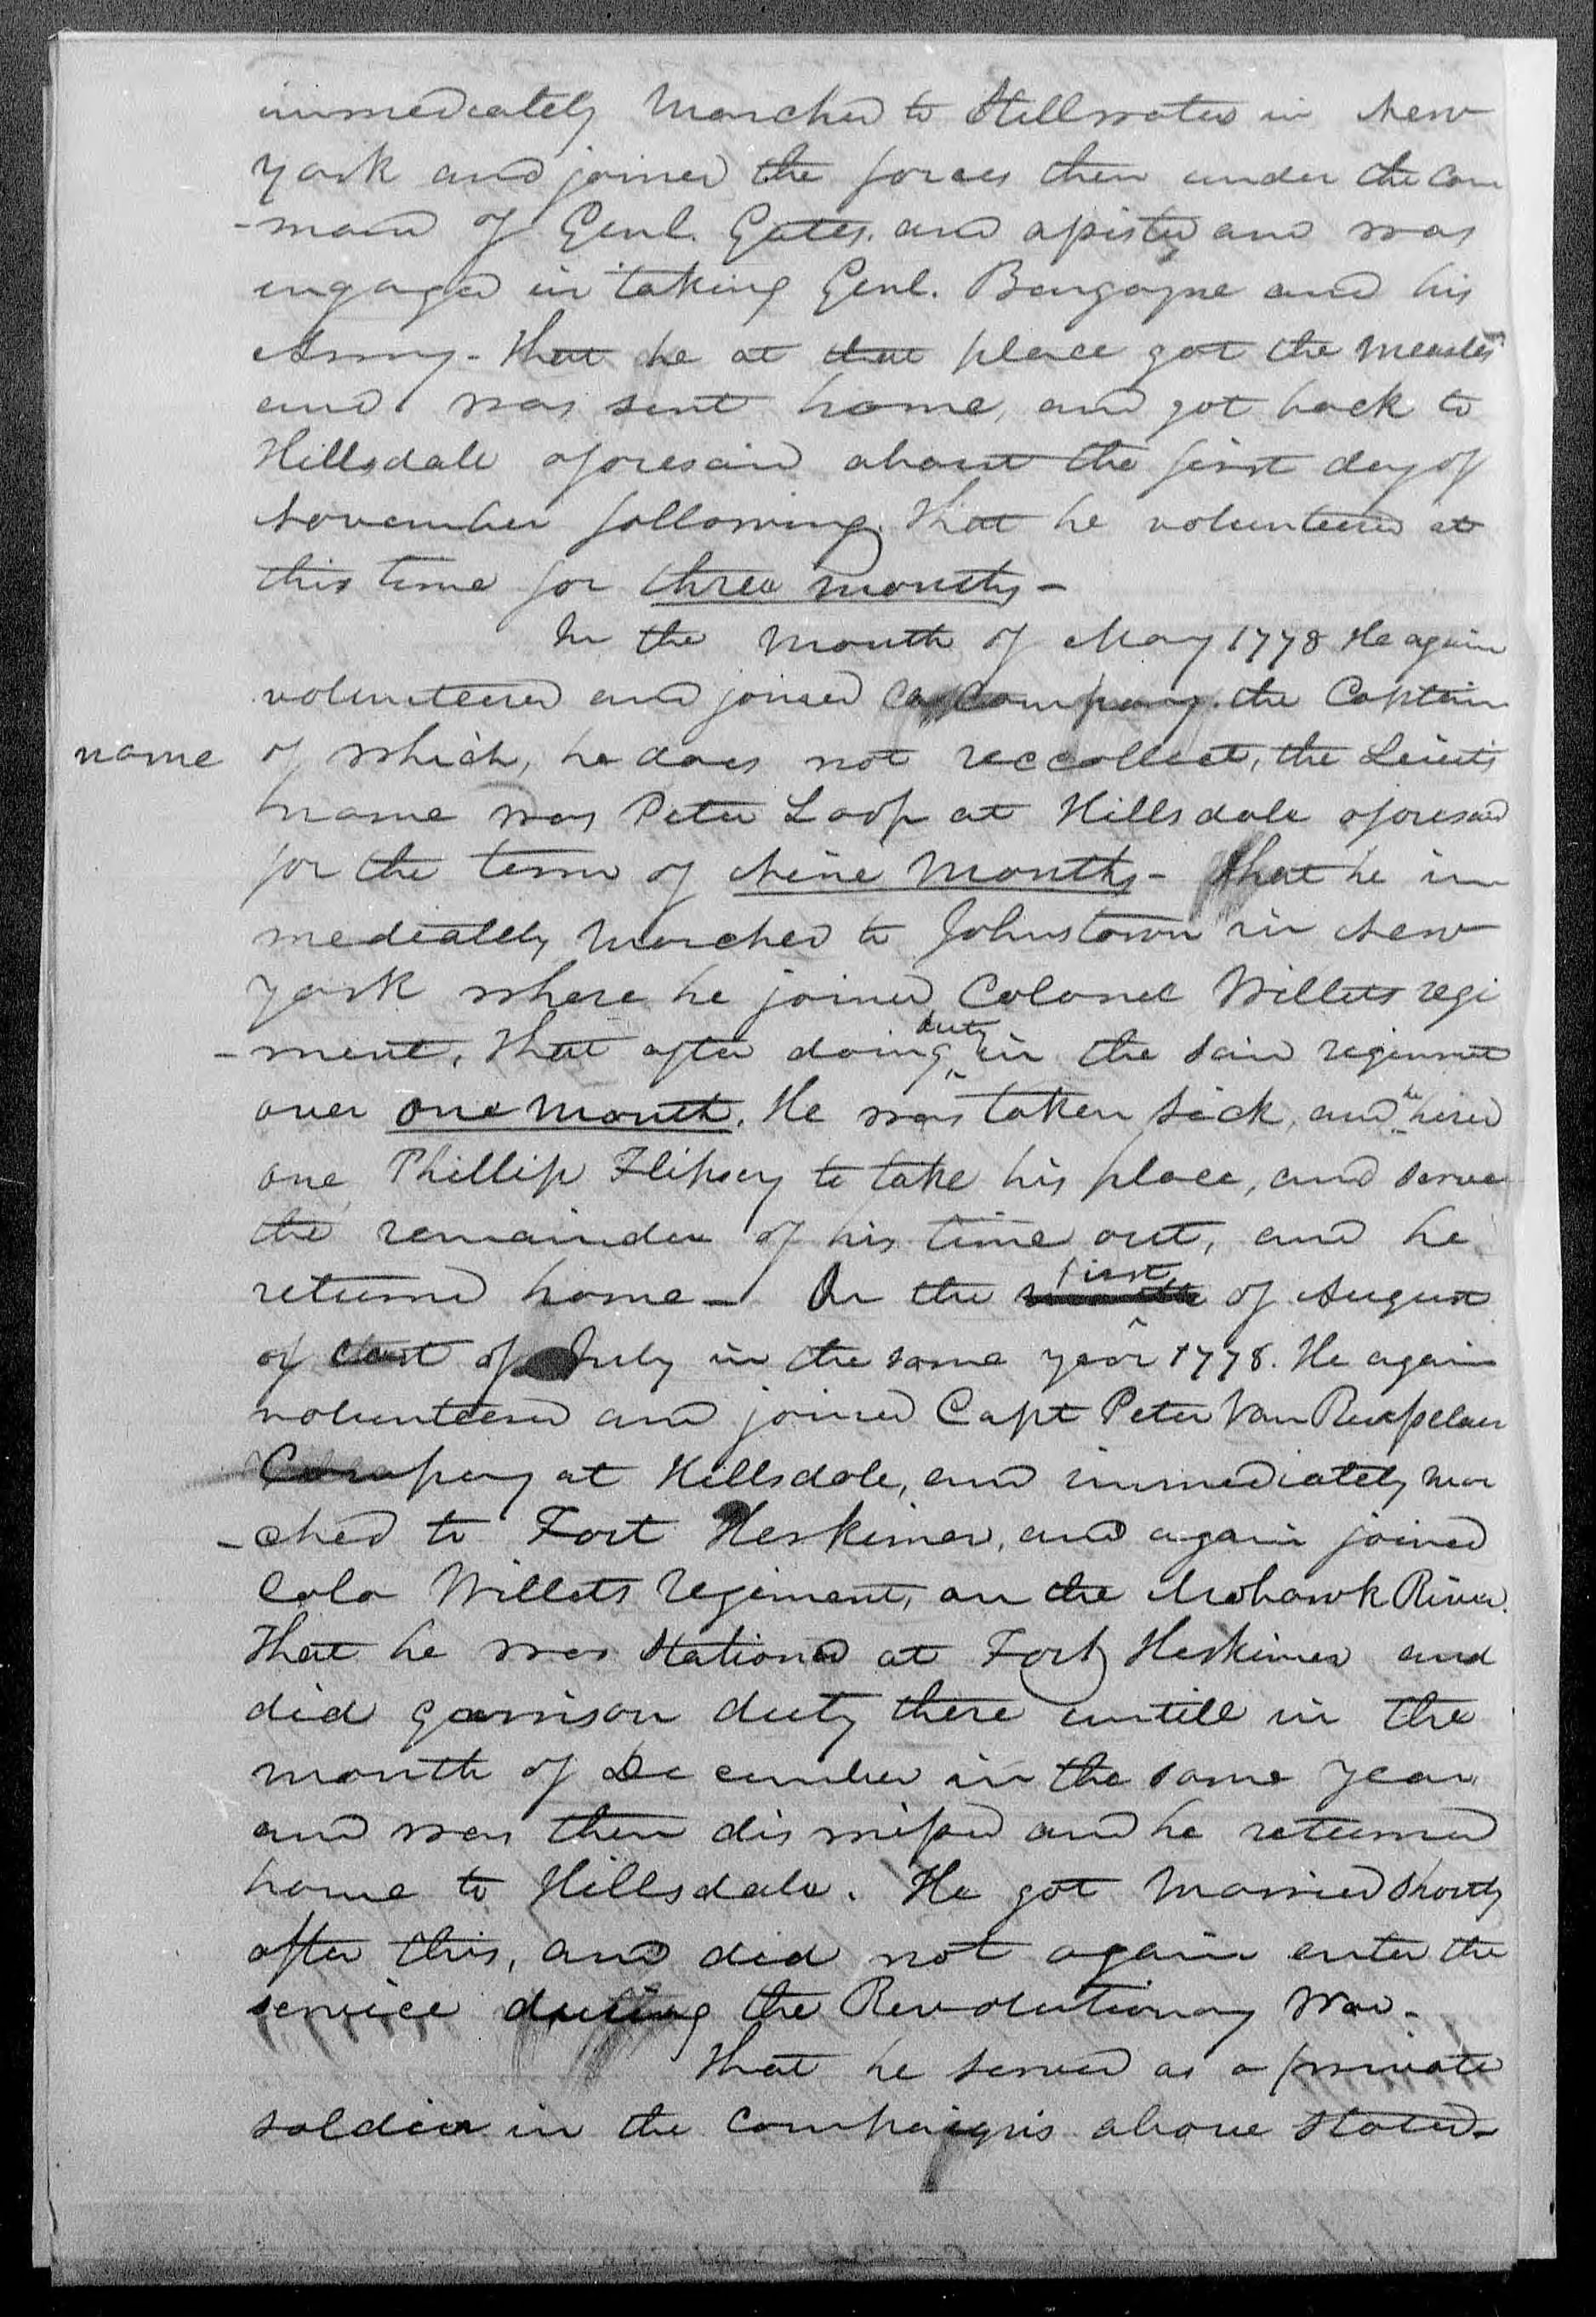 immediately marched to Stillwater in New
York and joined the forces then under the com
-mand of Genl. Gates. and assisted and was
engaged in taking Genl. Burgoyne and his
Army - that he at that place got the measles
and was sent home, and got back to
Hillsdale aforesaid about the first day of
November following. That he volunteered at
this time for three months -
In the month of May 1778 He again
volunteered and joined a company. the Captain
name of which, he does not reccollect, the Lieuts
name was Peter Loop at Hillsdale aforesaid
for the term of Nine Months - that he im
mediately marched to Johnstown in New
York where he joined Colonel Willets regi
-ment, that after doing duty in the said regiment
over one month. He was taken sick, and he hired
one Phillip Flipsey to take his place, and serve
the remainder of his time out, and he
returned home - On the first of August
of last of July in the same year 1778. He again
volunteered and joined Capt Peter Van Rensselaer
Company at Hillsdale, and immediately mar
-ched to Fort Herkimer, and again joined
Colo Willets Regiment, on the Mohawk River.
That he was stationed at Fort Herkimer and
did garrison duty there untill in the
month of December in the same year
and was then dismissed and he returned
home to Hillsdale. He got married shortly
after this, and did not again enter the
service during the Revolutionary War -
That he served as a private
soldier in the Compaigns above stated -